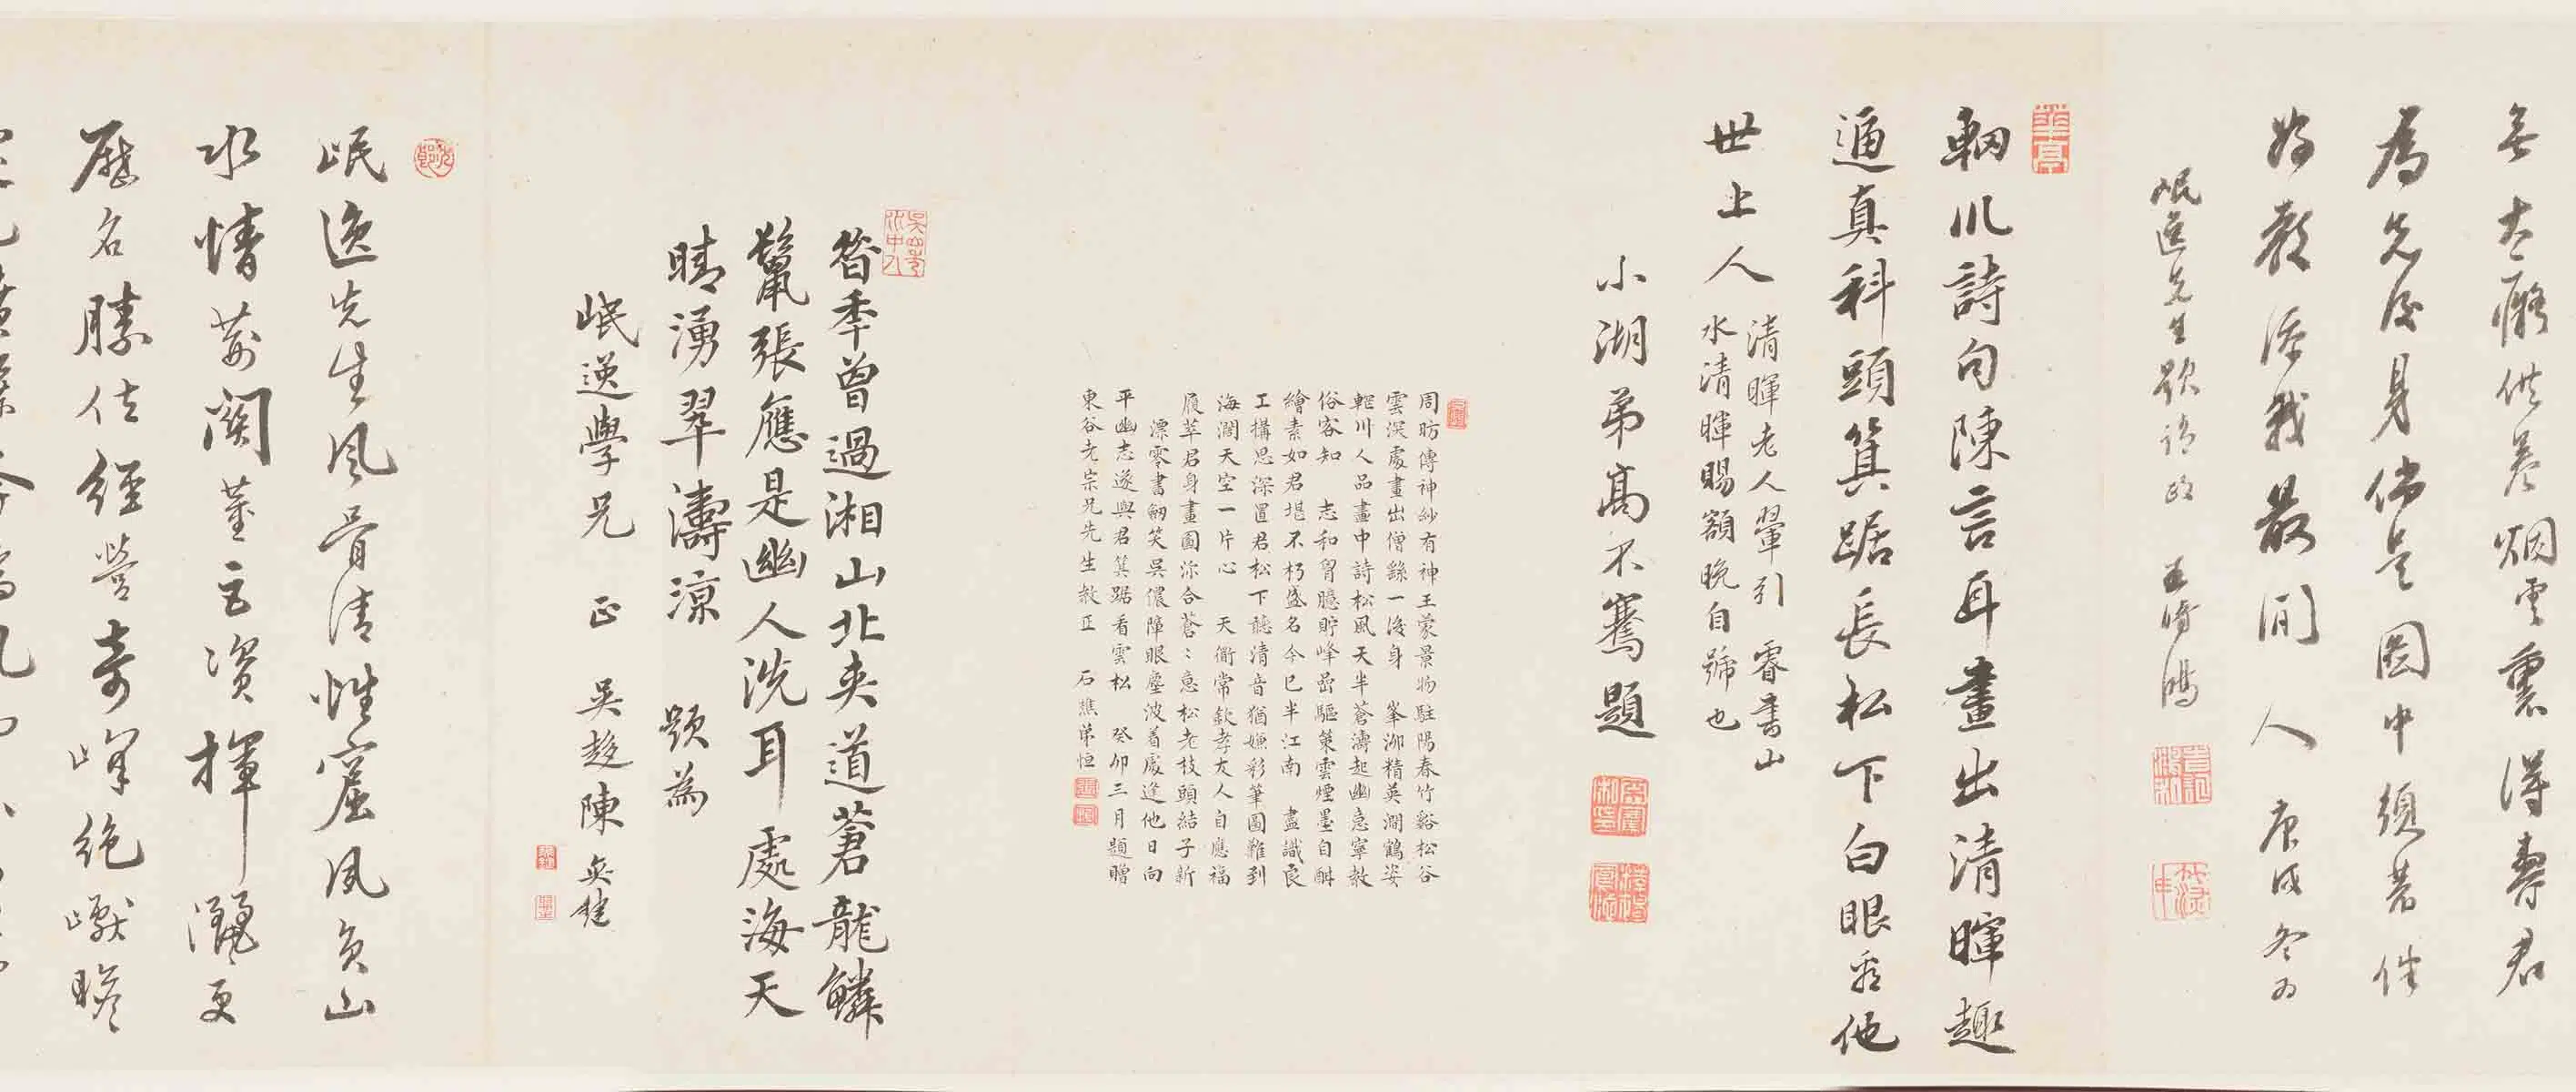 無太癡供養烟雲裏得壽君
為先後身倘是圖中須著伴
好教添我最閒人 庚戌冬為
岷逸先生題請政 王時鴻
輞川詩句陳言耳畫出清暉趣
逼真科頭箕踞長松下白眼看他
世上人
清暉老人翬引 睿書山
水清暉賜額晚自號也
小湖弟高不騫題
周昉傳神紗有神王蒙景物駐陽春竹谿松谷
雲深處畫出僧繇一後身 峯泖精英澗鶴姿
輕川人品畫中詩松風天半蒼濤起幽意寧教
俗客知 志和胷臆貯峰巒驅策雲煙墨自斟
繪素如君堪不朽盛名今已半江南 盡識良
工搆思深置君松下聽清音猶嫌彩筆圖難到
海濶天空一片心 天衢常欽孝友人自應福
履萃君身畫圖添合蒼〻意松老枝頭結子新
漂零書劒笑吳儂障眼塵波着處逢他日向
平幽志遂與君箕踞看雲松 癸卯三月題贈
東谷老宗兄先生教正 石樵弟恒
昝季曾過湘山北夾道蒼龍鱗
鬣張應是幽人洗耳處海天
晴湧翠濤涼 題為
岷逸學兄 正 吳趍陳
岷逸先生風骨清性窟夙負山
水情荊關董巨資揮灑更
歷名勝佐經營奇峰絶巘瞻